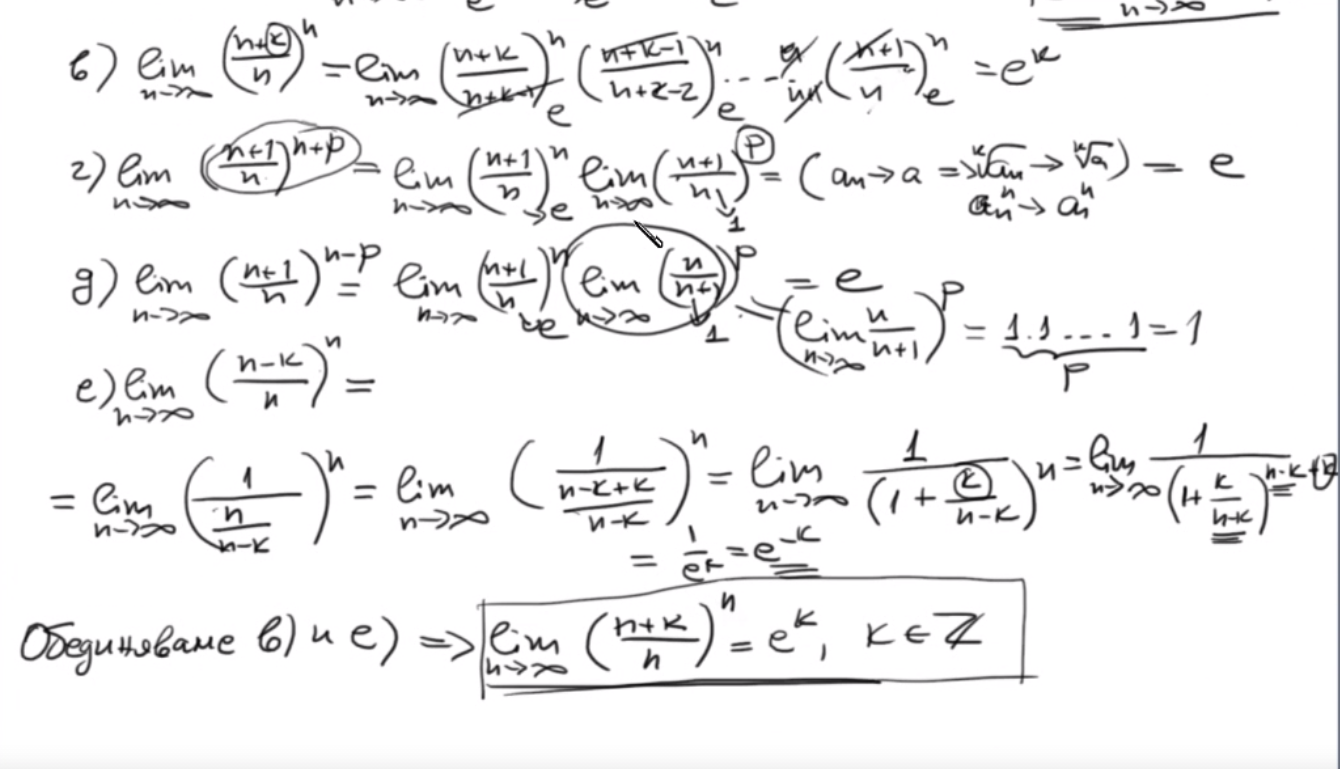 n→∞
в) lim n→∞ ((n+k)/n)^n = lim n→∞ ((n+k)/(n+k-1))^n e ((n+k-1)/(n+k-2))^n e ... ((n+1)/n)^n e = e^k
г) lim n→∞ ((n+1)/n)^(n+p) = lim n→∞ ((n+1)/n)^n →e lim n→∞ ((n+1)/n)^p ↓1 = (a_n→a => ᵏ√a_n → ᵏ√a) = e
a_n^n → a^n
д) lim n→∞ ((n+1)/n)^(n-p) = lim n→∞ ((n+1)/n)^n →e lim n→∞ (n/(n+1))^p ↓1 = e
= (lim n→∞ n/(n+1))^p = 1.1....1 = 1
p
е) lim n→∞ ((n-k)/n)^n =
= lim n→∞ (1/(n/(n-k)))^n = lim n→∞ (1/((n-k+k)/(n-k)))^n = lim n→∞ 1/(1 + k/(n-k))^n = lim n→∞ 1/(1+k/(n-k))^(n-k+k)
= 1/e^k = e^-k
Обединяваме в) и е) => lim n→∞ ((n+k)/n)^n = e^k, k ∈ ℤ